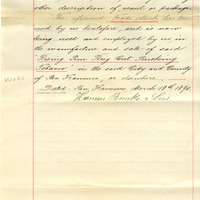 other description of vessel or package.
The aforesaid trade mark has been
used by us heretofore, but is now
being used and employed by us in
the manufacture and sale of said
Rising Sun Plug Cut Smoking
Tobacco in the said City and County
of San Francisco, or elsewhere.
Dated, San Francisco March 18th 1890.
& Sons